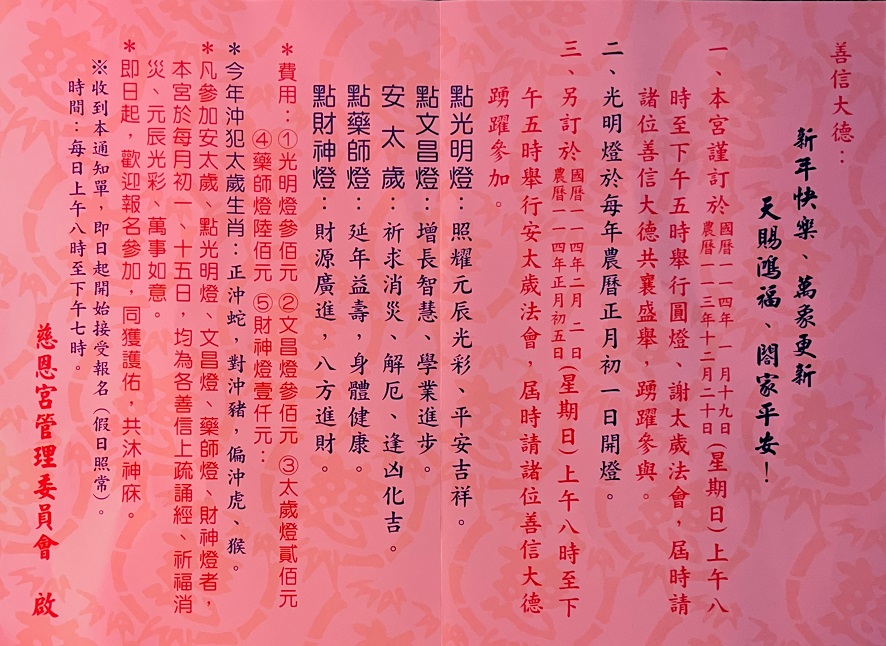 善信大德：
新年快樂、萬象更新
天賜鴻福、閤家平安！
一、本宮謹訂於國曆一一四年 一 月十九日農曆一一三年十二月二十日(星期日)上午八
時至下午五時舉行圓燈、謝太歲法會，屆時請
諸位善信大德共襄盛舉，踴躍參與。
二、光明燈於每年農曆正月初一日開燈。
三、另訂於國曆一一四年二月 二 日農曆一一四年正月初五日(星期日)上午八時至下
午五時舉行安太歲法會，屆時請諸位善信大德
踴躍參加。
點光明燈：照耀元辰光彩、平安吉祥。
點文昌燈：增長智慧、學業進步。
安太歲：祈求消災、解厄、逢凶化吉。
點藥師燈：延年益壽，身體健康。
點財神燈：財源廣進，八方進財。
＊費用：①光明燈參佰元 ②文昌燈參佰元 ③太歲燈貳佰元
④藥師燈陸佰元 ⑤財神燈壹仟元：
＊今年沖犯太歲生肖：正沖蛇，對沖豬，偏沖虎、猴。
＊凡參加安太歲、點光明燈、文昌燈、藥師燈、財神燈者，
本宮於每月初一、十五日，均為各善信上疏誦經、祈福消
災、元辰光彩、萬事如意。
＊即日起，歡迎報名參加，同獲護佑，共沐神庥。
※收到本通知單，即日起開始接受報名(假日照常)。
時間：每日上午八時至下午七時。
慈恩宮管理委員會 啟